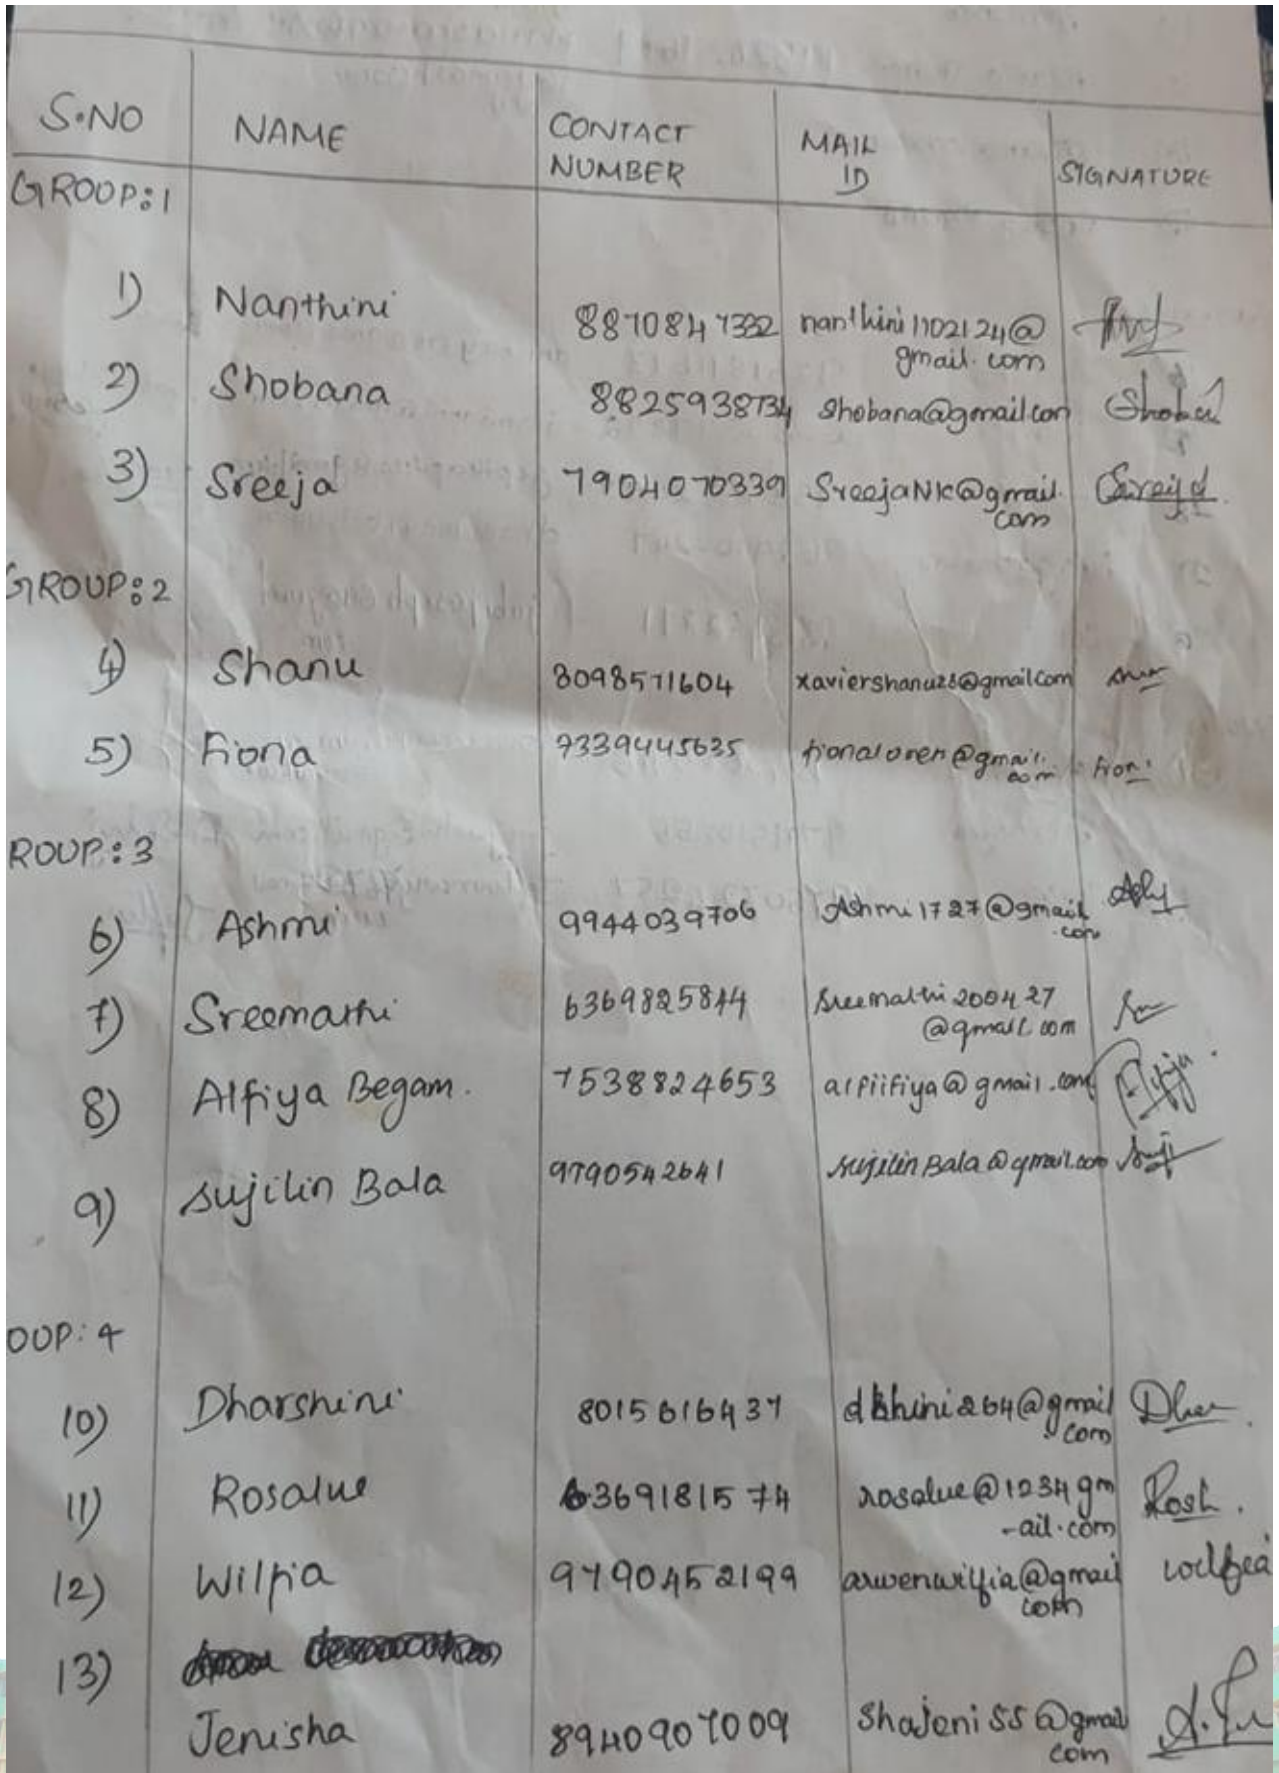 S.NO NAME CONTACT NUMBER MAIL ID SIGNATURE
GROUP:1
1) Nanthini 8870847332 nanthini1102124@
gmail.com
2) Shobana 8825938734 Shobana@gmail.com
3) Sreeja 7904070339 SreejaNK@gmail.
com
GROUP:2
4) Shanu 8098571604 xaviershanu28@gmail.com
5) Fiona 9339445635 fionaloren@gmail.
com
ROUP:3
6) Ashmi 9944039706 Ashmi1727@gmail
.com
7) Sreemathi 6369825844 Sreemathi200427
@gmail.com
8) Alfiya Begam. 7538824653 alfiifiya@gmail.com
9) Sujilin Bala 9790542641 sujilinBala@gmail.com
OUP:4
10) Dharshini 8015616437 @gmail
.com
11) Rosalue 6369181574 rosalue@1234gm
-ail.com
12) Wilfia 9790452199 arwenwilfia@gmail
com
13)
Jenisha 8940907009 Shajeni55@gmail
com